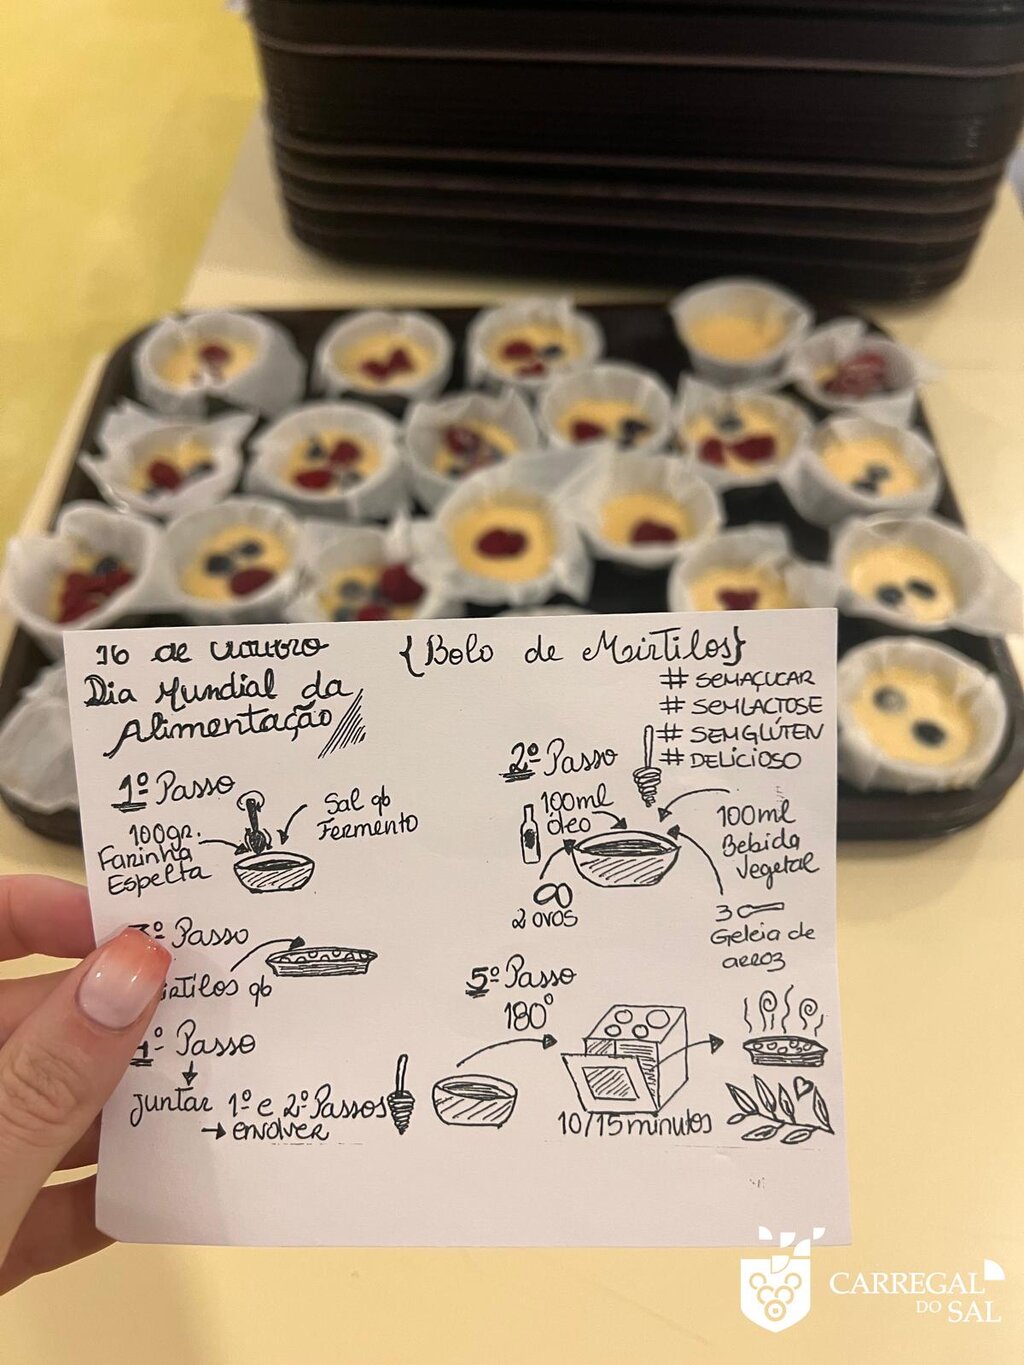 16 de outubro
Dia Mundial da
Alimentação
{Bolo de Mirtilos}
# SEMAÇUCAR
# SEMLACTOSE
# SEMGLÚTEN
# DELICIOSO
1º Passo
100gr.
Farinha
Espelta
Sal qb
Fermento
2º Passo
100ml
Óleo
2 ovos
100ml
Bebida
Vegetal
3
Geleia de
arroz
3º Passo
irtilos qb
4º Passo
juntar 1º e 2º Passos
→ envolver
5º Passo
180º
10/15 minutos
CARREGAL
DO SAL